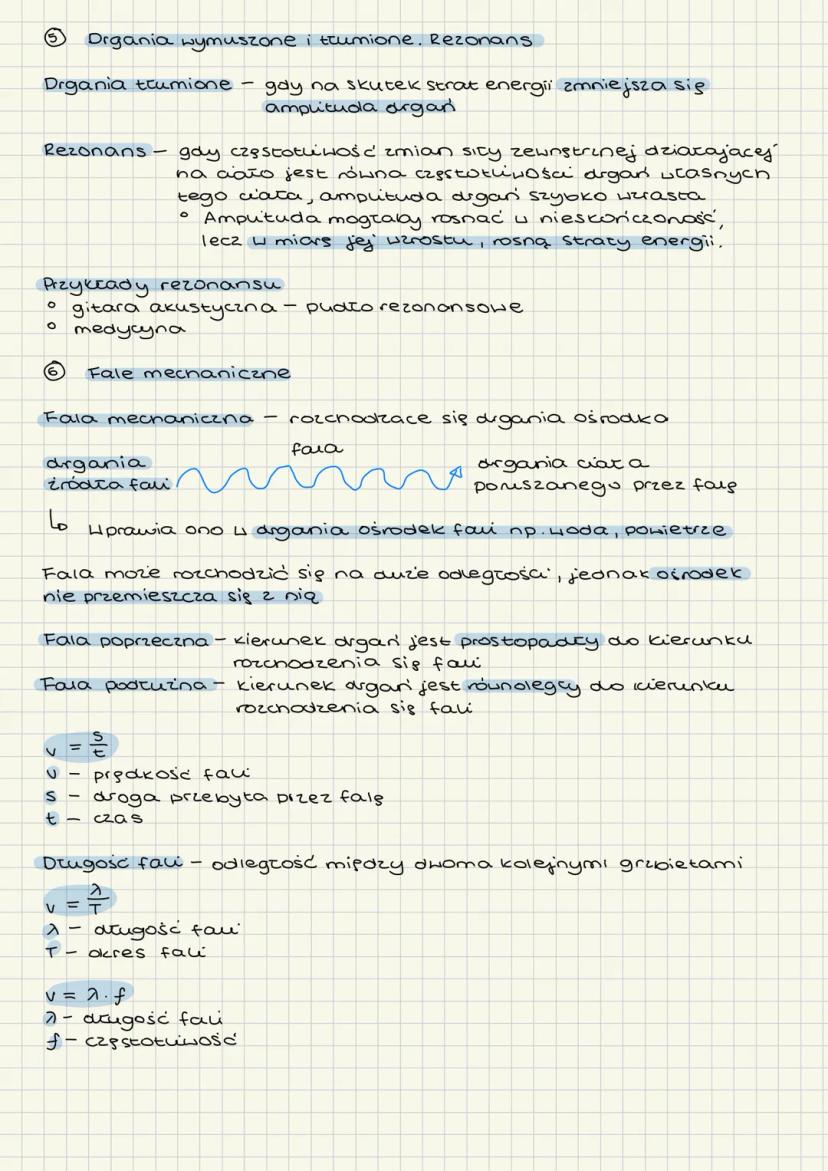 ⑤ Drgania wymuszone i tłumione. Rezonans
Drgania tłumione – gdy na skutek strat energii zmniejsza się
amplituda drgań
Rezonans – gdy częstotliwość zmian siły zewnętrznej działającej
na ciało jest równa częstotliwości drgań własnych
tego ciała, amplituda drgań szybko wzrasta
° Amplituda mogłaby rosnąć w nieskończoność,
lecz w miarę jej wzrostu, rosną straty energii.
Przykłady rezonansu
° gitara akustyczna – pudło rezonansowe
° medycyna
⑥ Fale mechaniczne
Fala mechaniczna – rozchodzące się drgania ośrodka
fala
drgania
źródła fali
drgania ciała
poruszanego przez falę
↳ Wprawia ono w drgania ośrodek fali np. woda, powietrze
Fala może rozchodzić się na duże odległości, jednak ośrodek
nie przemieszcza się z nią
Fala poprzeczna – kierunek drgań jest prostopadły do kierunku
rozchodzenia się fali
Fala podłużna – kierunek drgań jest równoległy do kierunku
rozchodzenia się fali
v = s/t
v – prędkość fali
s – droga przebyta przez falę
t – czas
Długość fali – odległość między dwoma kolejnymi grzbietami
v = λ/T
λ – długość fali
T – okres fali
v = λ · f
λ – długość fali
f – częstotliwość